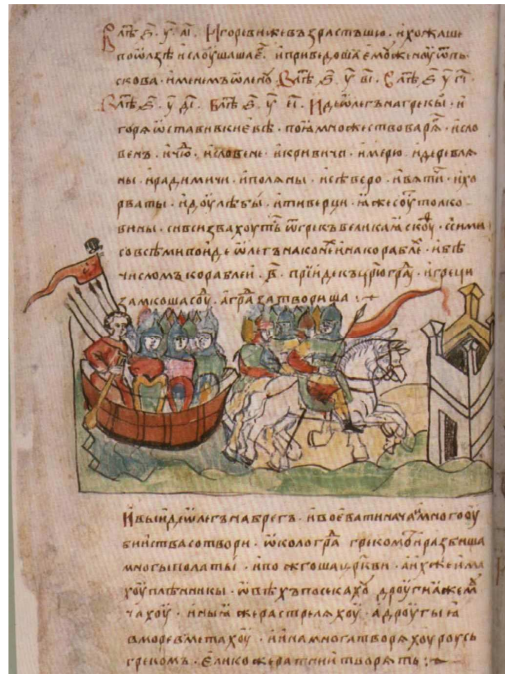 В лѣⷮ ҂ѕ҃ у҃ аі҃ · Игоревижевъзрастъшю · ихожаше
поѡлзѣ ислоушаше · иприведошаемоуженоу ѿпь
скова · именемъѡленоу · В лѣⷮ ҂ѕ҃ у҃ ві҃ · В лѣⷮ ҂ѕ҃ у҃ гі҃
В лѣⷮ ҂ѕ҃ у҃ ді҃ · В лѣⷮ ҂ѕ҃ у҃ еі҃ · Идеѡлегънагрекы · и
горѧ ѡставивкиевѣ · поꙗмножествоварѧ · исло
венъ · ичю · исловене · икривичи · имерю · идеревлѧ
ны · ирадимичи · иполѧны · исѣверо · ивѧтичи · ихо
рваты · идоулѣбы · итиверци · ꙗжесоуⷮ толко
вины · сивсизвахоутьⷭ ѿгрекъ великаꙗскоуⷴ · ссими
совсѣмипоидеѡлегънаконеⷯинакораблеⷯ · ибѣ
числомъкораблеи · в҃ · прїидекъцрюграⷣ · игреци
замкошасоуⷣ · аграⷣзатвориша :·
ивыидеѡлегънабрегъ · ивоеватинача · имногооу
биистваѕотвори · ѡколограⷣ грекомъ · иразбиша
многыполаты · ипожгошацркви · аихжеима
хоуплѣнникы · ѡвѣхъпосѣкахоу дроугиꙗжемоу
чахоу · иныꙗжерастрелѧхоу · адроугыꙗ
вморевметахоу · иинамноготворѧхоуроусь
грекомъ · еликожератнїитворѧть :·